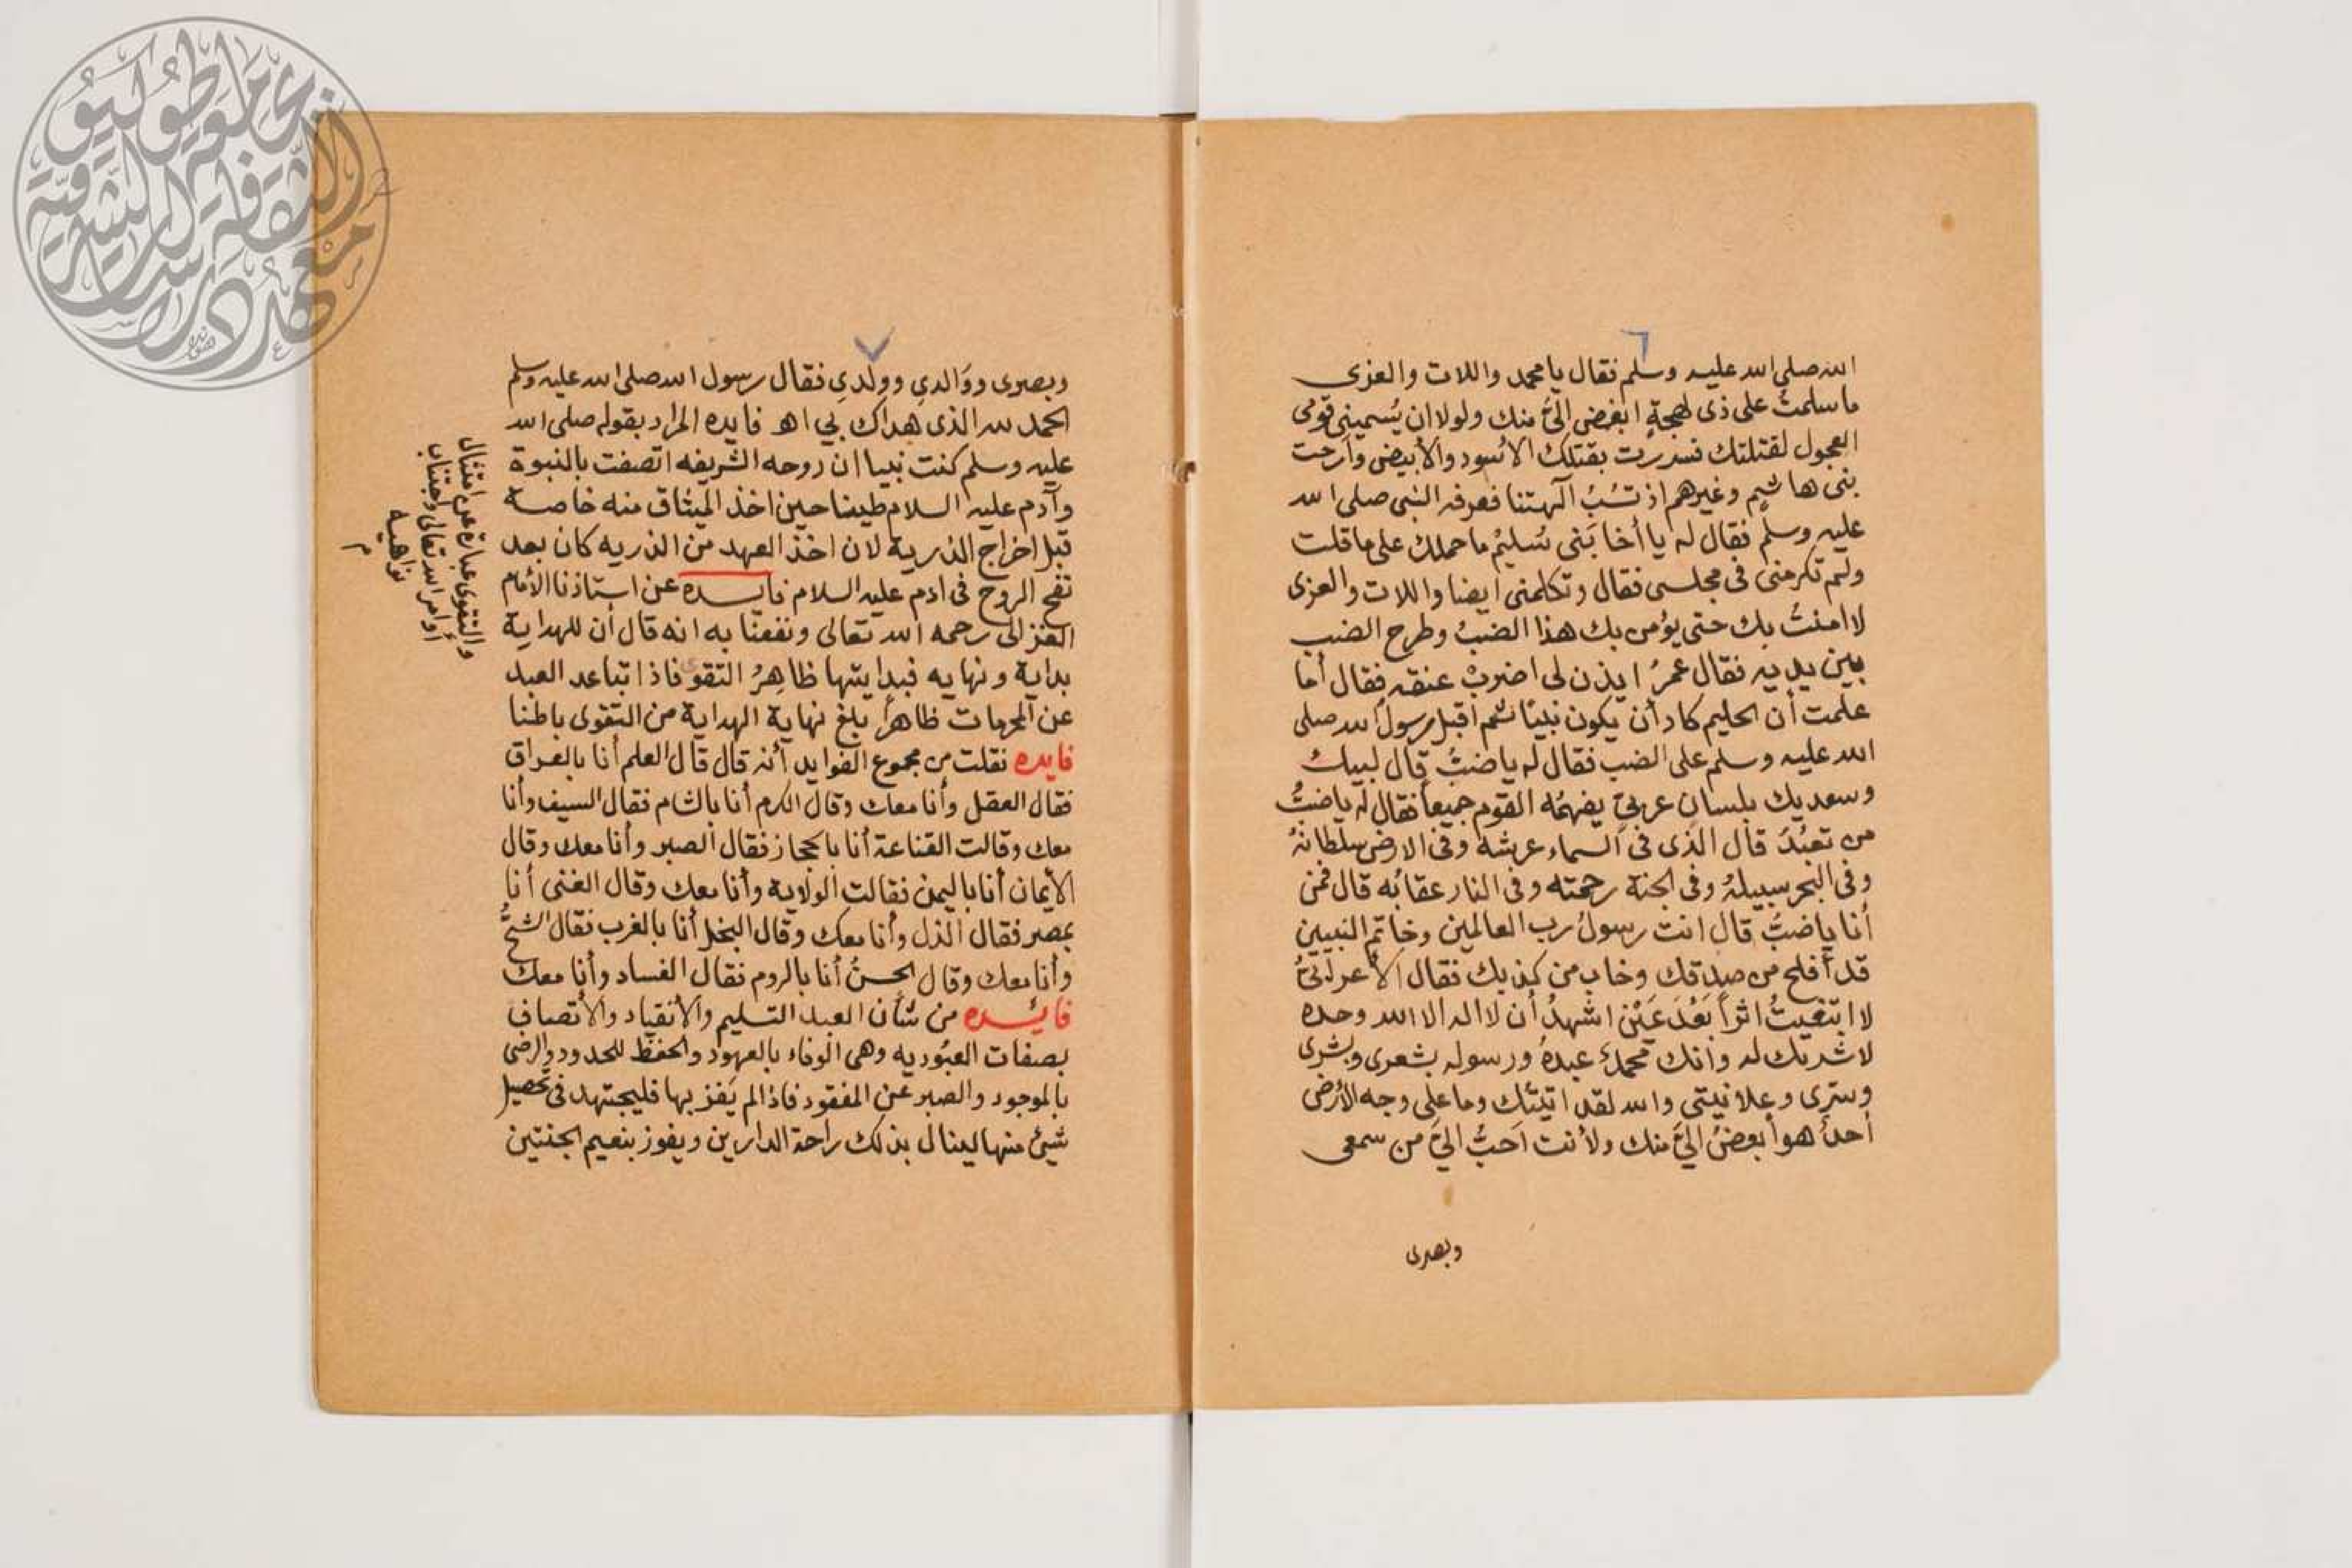 ٦
الله صلى الله عليه وسلم فقال يا محمد واللات والعزى
ما سلمتُ على ذى لهجةٍ ابغض الىَّ منك ولولا ان يُسمينى قومى
العجول لقتلتك فسررت بقتلك الاسود والأبيض وأرحت
بنى هاشمٍ وغيرهم اذ تسُبُّ آلهتنا فعرفه النبى صلى الله
عليه وسلم فقال له يا أخا بَنى سُليْم ما حملك على ما قلت
ولم تكرمنى فى مجلسى فقال وتكلمنى ايضا واللات والعزى
لا امنتُ بك حتى يؤمن بك هذا الضبُ وطرح الضب
بين يديه فقال عمرُ ايذن لى اضربْ عنقه فقال أما
علمت أن الحليم كاد أن يكون نبيًا ثم اقبل رسول الله صلى
الله عليه وسلم على الضب فقال له يا ضبُّ قال لبيك
وسعديك بلسانٍ عربىٍّ يفهمُه القوم جميعاً فقال له يا ضبُّ
من تعبُدَ قال الذى فى السماء عرشه وفى الارض سلطانهُ
وفى البحر سبيلهُ وفى الجنة رحمته وفى النار عقابُه قال فمن
أنا يا ضبُّ قال انت رسولُ رب العالمين وخاتم النبيين
قد أفلح من صدقك وخاب من كذبك فقال الأعرابىُّ
لا ابتغيتُ اثراً بَعْدَ عَيْن اشهدُ أن لا اله الا الله وحده
لا شريك له وأنك محمدٌ عبدهُ ورسوله بشعرى وبشرى
وسرّى وعلانيتى والله لقد اتيتك وما على وجه الأرض
أحدٌ هو أبعضُ الىَّ منك ولأنت اَحبُّ الىَّ من سمعى
وبصرى
٧
وبصرى ووَالدىِ وولدىِ فقال رسول الله صلى الله عليه وسلم
الحمد لله الذى هداك بى اه فايده المراد بقوله صلى الله
عليه وسلم كنت نبيا ان روحه الشريفه اتصفت بالنبوة
وآدم عليه السلام طينا حين اخذ الميثاق منه خاصة
قبل اخراج الذرية لان اخذ العهد من الذريه كان بعد
نفح الروح فى ادم عليه السلام فايده عن استاذنا الأمام
الغزالى رحمه الله تعالى ونفعنا به انه قال أن للهداية
بداية ونهايه فبدايتها ظاهِرُ التقوى فاذا تباعد العبد
عن المحرمات ظاهراً بلغ نهاية الهداية من التقوى باطنا
فايده نقلت من مجموع الفوايد أنه قال قال العلم أنا بالعراق
فقال العقل وأنا معك وقال الكرم أنا بالشام فقال السيف وأنا
معك وقالت القناعة أنا بالحجاز فقال الصبر وأنا معك وقال
الأيمان أنا باليمن فقالت الولاية وأنا معك وقال الغنى أنا
بمصر فقال الذل وأنا معك وقال البخل أنا بالغرب فقال الشحُّ
وأنا معك وقال الحسنُ أنا بالروم فقال الفساد وأنا معك
فائده من شأن العبد التسليم والأنقياد والأتصاف
بصفات العبُوديه وهى الوفاء بالعهود والحفظ للحدود والرضى
بالموجود والصبر عن المفقود فاذا لم يَفز بها فليجتهد فى تحصيل
شيئ منها لينال بذلك راحة الدارين ويفوز بنعيم الجنتين
والتقوى عبارة عن امتثال
أوامر الله تعالى واجتناب
نواهيه
م